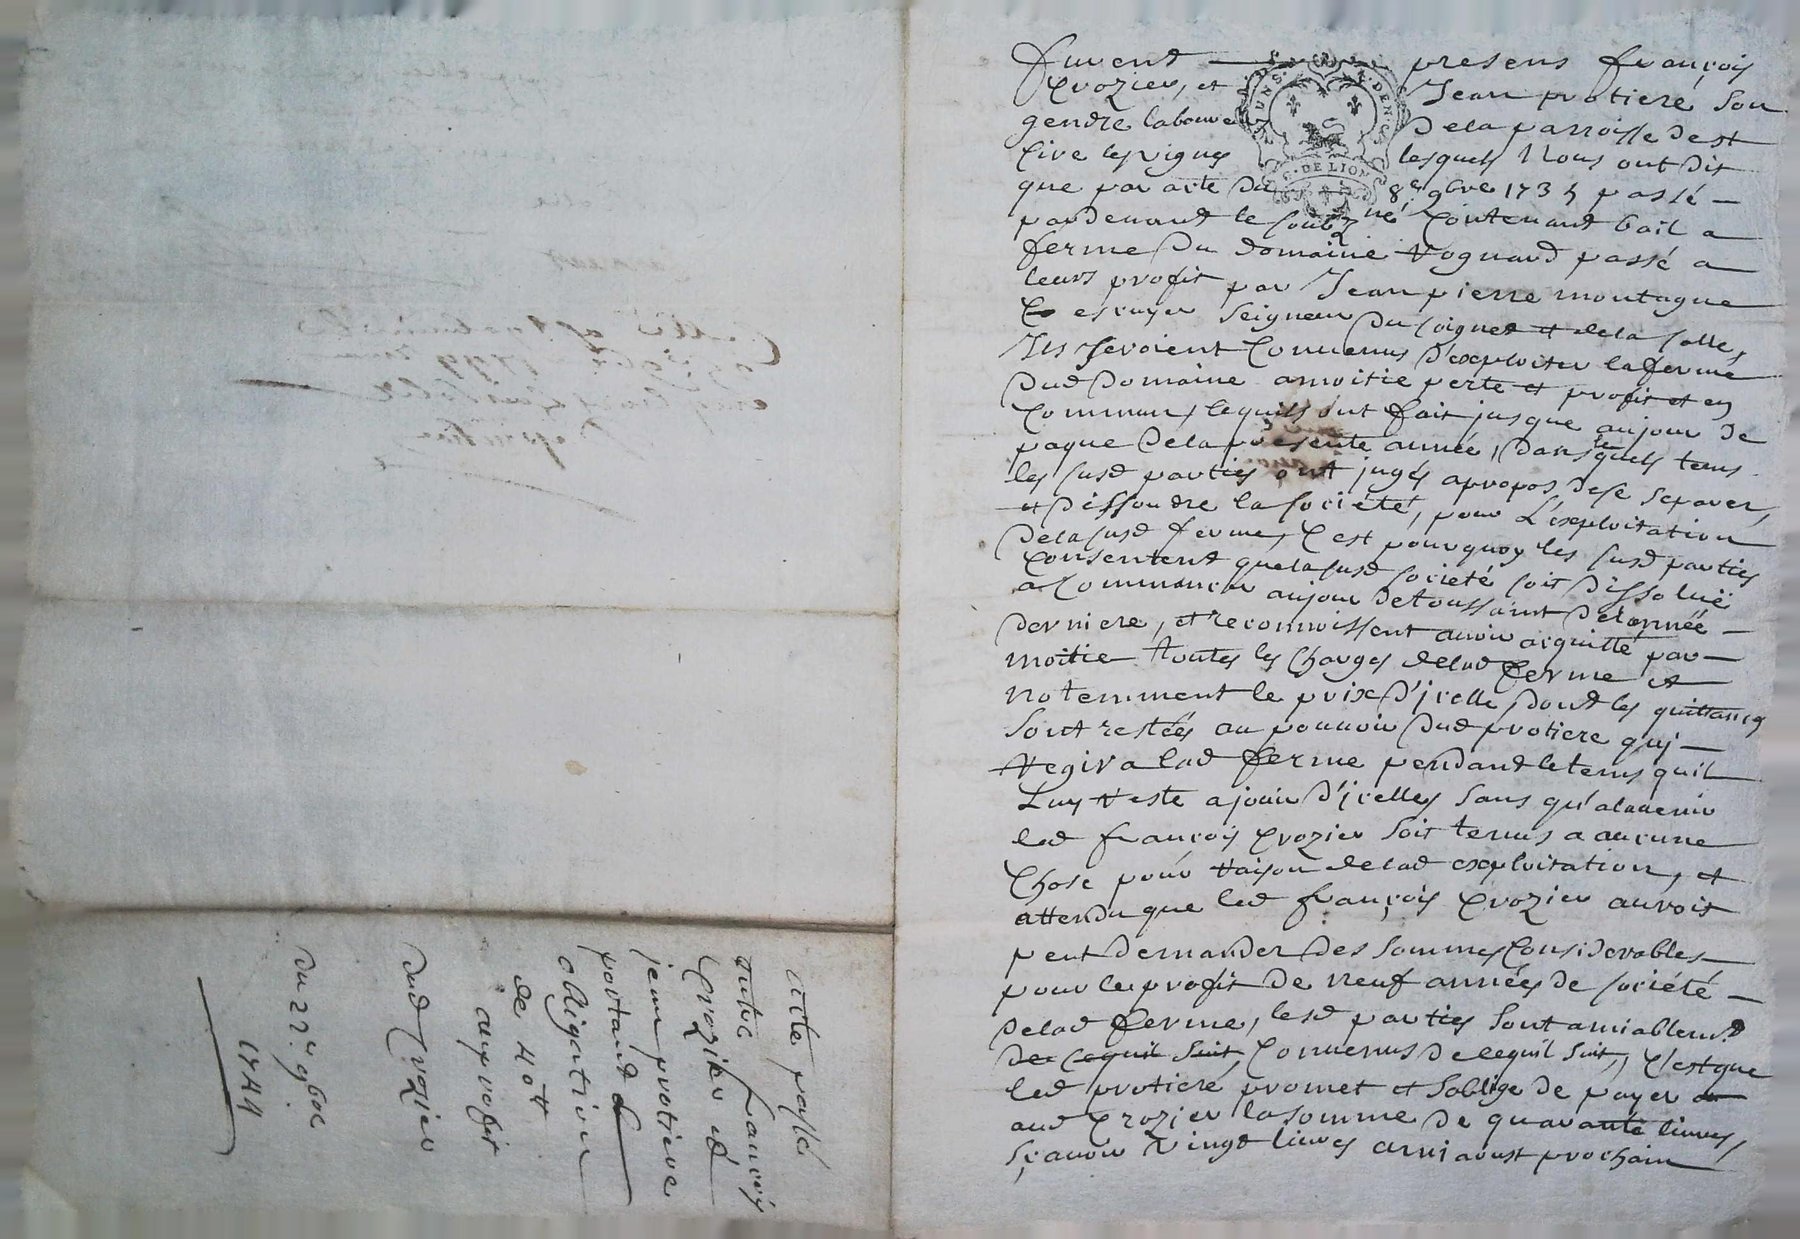 furent presens françois
Crozier, et Jean protiere son
gendre laboureurs de la parroisse de st
Cire les vignes lesquels Nous ont dit
que par acte du 8e 9bre 1735 passé
pardevant le soubzné Contenant bail a
ferme du domaine Rognard passé a
leurs profit par Jean pierre montagne
Escuyer Seigneur du poignet et de la salle,
Ils seroient Convenus d'exploiter la ferme
dud domaine a moitie perte et profit et en
Commun, ce quils ont fait jusque aujour de
paque de la presente année, dans lequels tems
les susd parties ont jugés apropos de se separer,
et dissoudre la société, pour L'exploitation
de la susd ferme, C'est pourquoy les susd parties
Consentent que la susd societé soit dissoluë
a Commancer aujour de toussaint de l'année
derniere, et reconnoissent avoir acquitté par
moitie toutes les Charges de lad ferme et
notemment le prix d'icelle, dont les quittances
sont restées au pouvoir dud protiere qui
Regira lad ferme pendant le tems quil
Luy Reste a jouir d'icelles sans qu'alavenir
led françois Crozier soit tenus a aucune
Chose pour Raison de lad exploitation, et
attendu que led françois Crozier auroit
peut demander des sommes Considerables
pour les profit de neuf années de société
de lad ferme, lesd parties sont amiablemt
de cequil suit, Convenus de cequil suit, C'est que
led protiere promet et soblige de payer
aud Crozier la somme de quarante livres,
sçavoir Vingt livres a mi aoust prochain
acte passé
entre françois
Crozier et
jean protiere
portant
obligation
de 40 tt
au profit
dud Crozier
du 22e 9bre
1744